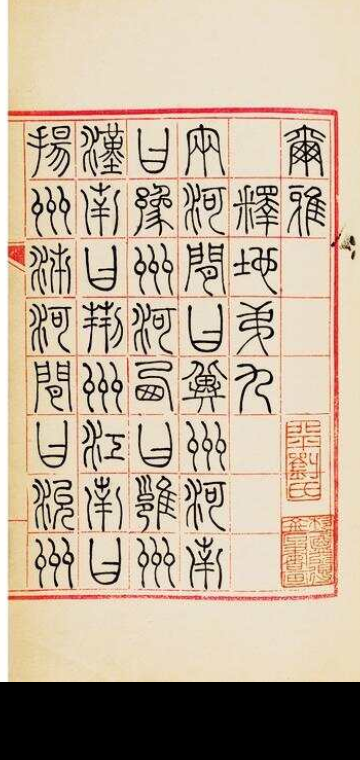 爾雅
釋地弟九
兩河閒曰冀州河南
曰豫州河西曰雝州
漢南曰荊州江南曰
揚州泲河閒曰沇州